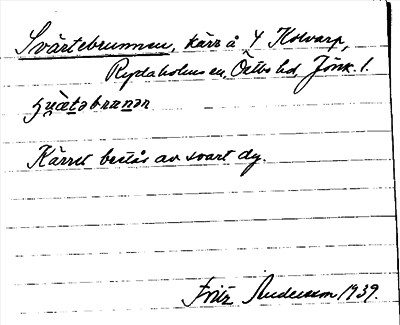 Svärtebrunnen, kärr å Y Holvarp,
Rydaholms sn, Östbo hd, Jönk. l.
Kärret består av svart dy.
Fritz Andersson 1939.